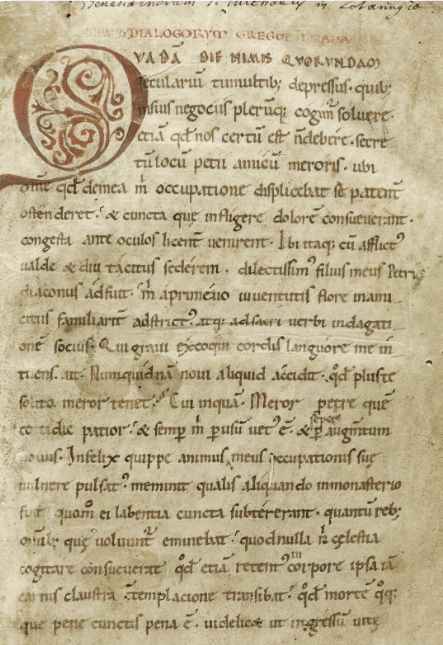 Benedictinorum S. Michaelis in Lotaringia
DIALOGORUM GREGORII PAPAE
QVADĀ DIE NIMIS QVORUNDAM
seculariū tumultib; depressus. quib;
insuis negociis plerūq; cogim̃ solvere.
etiā qđ nos certū est ñdebere. secre
tū locū petii amicū meroris. ubi
om̄e qđ demea m̃ occupatione displicebat se patent̃
ostenderet. & cuncta que infligere dolorē consueverant.
congesta ante oculos licent̃ venirent. Ibi itaq; cū afflict⁹
valde & diu tacitus sederem. dilectissim⁹ filius meus Petrus
diaconus adfuit. m̃ aprimevo iuventutis flore inami
citiis familiarit̃ adstrict⁹. atq; adsacri verbi indagati
onē socius. Qui gravi excoqui cordis languore me in
tuens. ait. Nunquidnā novi aliquid accidit. qđ pl⁹ste
solito meror tenet. Cui inquā. Meror petre quē
cotidie patior. & semp̱ m̃ p̱usū vet⁹ ē. & semp̱ p̱ augm̄tum
novus. Infelix quippe animus meus occupationis suę
vulnere pulsat⁹. meminit qualis aliquando inmonasterio
fuit. quom̊ ei labentia cuncta subtererant. quantū reb;
omib; quę volvunt̃ eminebat. quodnulla ñ cęlestia
cogitare consueverat. qđ etiā retent⁹ corpore ipsa iā
carnis claustra c̄templacione transibat. qđ mortē q̊q;
que pene cunctis pena ē. videlicet ut ingressū vitę